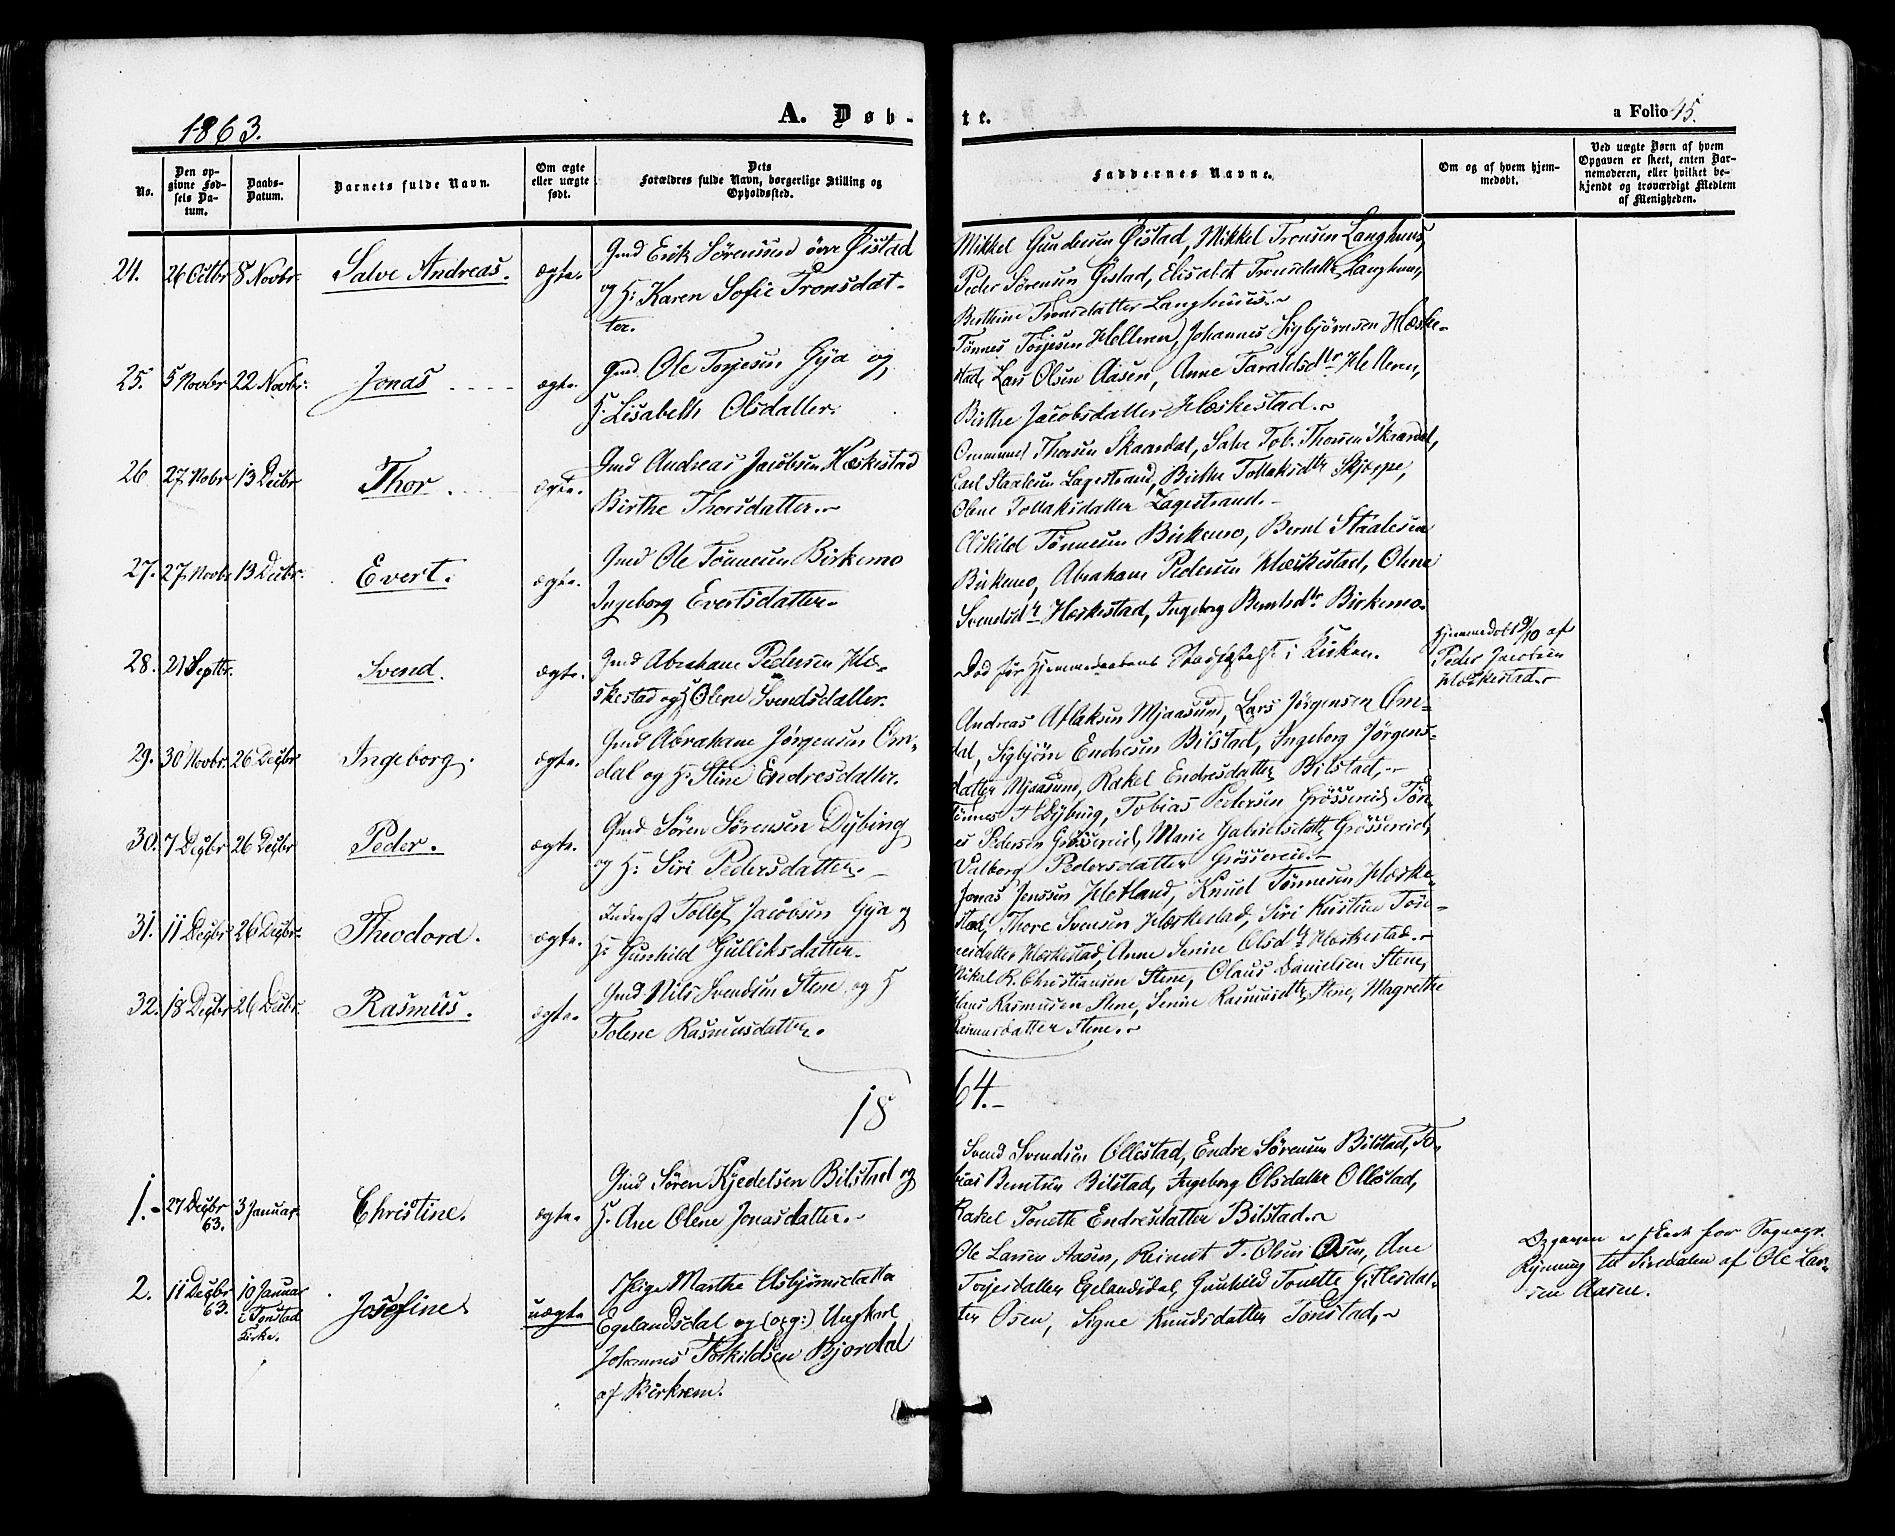 1863.
A. Døb-
te.
a Folio 45.
No.
Den op-
givne Fød-
sels Da-
tum.
Daabs-
Datum.
Barnets fulde Navn.
Om ægte
eller uægte
født.
Dets
Forældres fulde Navn, borgerlige Stilling og
Opholdssted.
Faddernes Navne.
Om og af hvem hjem-
medøbt.
Ved uægte Børn af hvem
Opgaven er skeet, enten Bar-
nemoderen, eller hvilket be-
kjendt og troværdigt Medlem
af Menigheden.
24. 26 Octbr 8 Novbr. Salve Andreas. ægte.
Gmd Erik Sørensen övre Øistad
og H: Karen Sofie Tronsdat-
ter.
Mikkel Gundersen Øistad, Mikkel Tronsen Langhuus,
Peder Sørensen Øistad, Elisabet Tronsdatter Langhuus,
Berthine Tronsdatter Langhuus.
25. 5 Novbr 22 Novbr. Jonas ægte.
Gmd. Ole Torjesen Gya og
H. Lisabeth Olsdatter.
Tönnes Torjesen Helleren, Johannes Sigbjörnsen Hæske-
stad, Lars Olsen Aasen, Anne Taraldsdtr Helleren,
Birthe Jacobsdatter Hæskestad.
26 27 Nobr 13 Decbr Thor. ægte.
Gmd Andreas Jacobsen Hæskestad
Birthe Thorsdatter.
Ommund Thorsen Skaardal, Salve Tob. Thorsen Skaardal,
Carl Staalesen Lagestrand, Birthe Tollaksdtr Skjeppe,
Olene Tollaksdatter Lagestrand.
27. 27 Novbr 13 Decbr. Evert. ægte.
Gmd Ole Tönnesen Birkemo
Ingeborg Evertsdatter.
Askild Tönnesen Birkemo, Bernt Staalesen
Birkemo, Abraham Pedersen Hæskestad, Olene
Svendsdtr Hæskestad, Ingeborg Berntsdtr Birkemo.
28. 21 Septbr. Svend. ægte.
Gmd Abraham Pedersen Hæ-
skestad og H Olene Svendsdatter.
Död før Hjemmedaabens Stadfæstelse i Kirken.
Hjemmedøbt 9/10 af
Peder Jacobsen
Hæskestad.
29. 30 Novbr. 26 Decbr Ingeborg. ægte.
Gmd Abraham Jørgensen Om-
dal og H. Stine Endresdatter.
Andreas Atlaksen Mjaasund, Lars Jørgensen Om-
dal, Sigbjørn Endresen Bilstad, Ingeborg Jørgens-
datter Mjaasund, Rakel Endresdatter Bilstad,
30. 7 Decbr 26 Decbr Peder. ægte.
Gmd Sören Sörensen Dybing
og H: Siri Pedersdatter.
Tönnes Dybing, Tobias Pedersen Grössereid, Tön-
es Pedersen Grössereid, Marie Gabrielsdtr Grössereid,
Valborg Pedersdatter Grössereid.
31. 11 Decbr 26 Decbr. Theodora. ægte.
Inderst Tollef Jacobsen Gya og
H: Gunhild Gulliksdatter.
Jonas Jenssen Hetland, Knud Tønnesen Hæske-
stad, Thore Svensen Hæskestad, Siri Kristine Tön-
nesdatter Hæskestad, Anne Senine Olsdtr Hæskestad.
32. 18 Decbr 26 Decbr. Rasmus. ægte.
Gmd Nils Svendsen Stene og H
Tolene Rasmusdatter.
Mikal R. Christiansen Stene, Olaus Danielsen Stene,
Hans Rasmussen Stene, Senine Rasmusdtr Stene, Magrethe
Rasmusdatter Stene.
18
64.
1. 27 Decbr
63. 3 Januar. Christine. ægte.
Gmd Søren Kjedelsen Bilstad og
H. Ane Olene Jonasdatter.
Svend Svendsen Ollestad, Endre Sörensen Bilstad, To-
bias Berntsen Bilstad, Ingeborg Olsdatter Ollestad,
Rakel Tonette Endresdatter Bilstad.
2. 11 Decbr
63. 10 Januar
i Tonstad
Kirke. Josefine uægte
Pige Martha Asbjørnsdatter
Egelandsdal og (opg:) Ungkarl
Johannes Torkildsen Bjordal
af Birkrem.
Ole Larsen Aasen, Reinert T. Olsen Osen, Ane
Torjesdatter Egelandsdal, Gunhild Tonette Gitlesdat-
ter Osen, Signe Knudsdatter Tonstad,
Opgaven er skeet for Sognepr.
til Siredalen af Ole Lar-
sen Aasen.